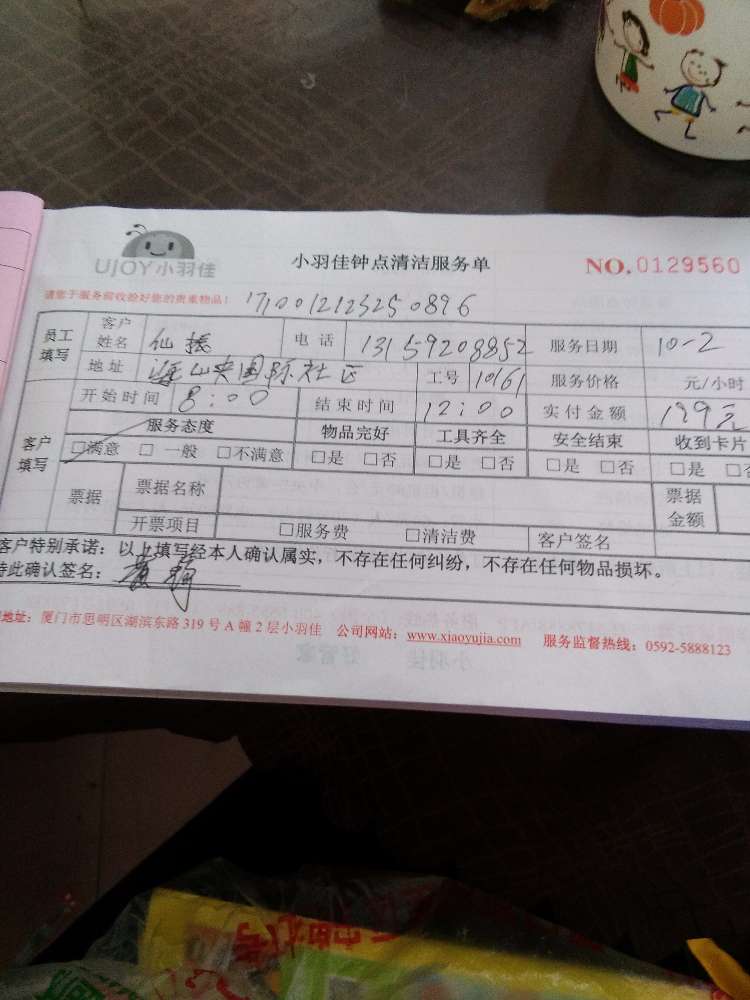 UJOY小羽佳 小羽佳钟点清洁服务单 NO.0129560
请您于服务前收验好您的贵重物品! 1710012123250896
员工填写 客户姓名 仙 电话 13159208852 服务日期 10-2
地址 山央国际社区 工号 10161 服务价格 元/小时
客户填写 开始时间 8:00 结束时间 12:00 实付金额 199元
服务态度 物品完好 工具齐全 安全结束 收到卡片
□满意 □一般 □不满意 □是 □否 □是 □否 □是 □否 □是 □否
票据 票据名称 票据金额
开票项目 □服务费 □清洁费 客户签名
客户特别承诺：以上填写经本人确认属实，不存在任何纠纷，不存在任何物品损坏。
特此确认签名：
地址：厦门市思明区湖滨东路319号A幢2层小羽佳 公司网站：www.xiaoyujia.com 服务监督热线：0592-5888123